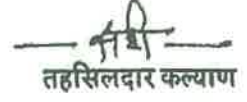 तहसिलदार कल्याण